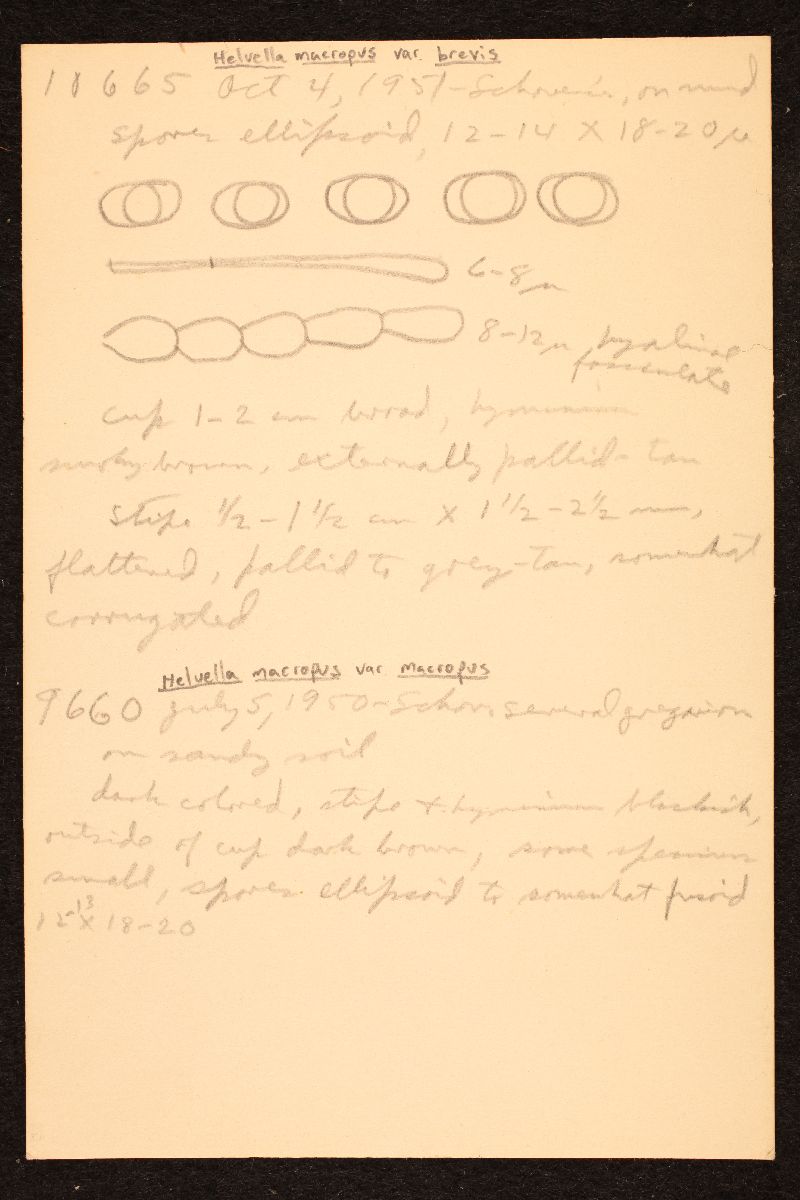 Helvella macropus var. brevis
10665 Oct 4, 1951 - Schovenis, on mud
spores ellipsoid, 12-14 X 18-20 μ
6-8 μ
8-12 μ hyaline
fasciculate
cup 1-2 cm broad, hymenium
smoky brown, externally pallid-tan
stipe ½-1½ cm X 1½-2½ mm,
flattened, pallid to grey-tan, somewhat
corrugated
Helvella macropus var. macropus
9660 July 5, 1950 - Schov. several gregarious
on sandy soil
dark colored, stipe + hymenium blackish,
outside of cup dark brown, some specimens
small, spores ellipsoid to somewhat fusoid
12-13 X 18-20